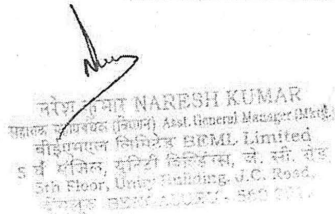 नरेश कुमार NARESH KUMAR
सहायक महाप्रबंधक (विपणन) Asst. General Manager (Mktg.)
बीईएमएल लिमिटेड BEML Limited
5 वं मंजिल, यूनिटी बिल्डिंग्स, जे. सी. रोड
5th Floor, Unity Building, J.C. Road,
BENGALURU - 560